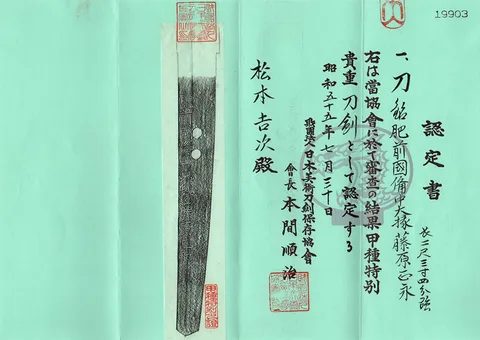 19903
認定書
一、刀 銘 肥前國備中大掾藤原正永
長二尺三寸四分強
右は當協會に於て審査の結果甲種特別
貴重刀剣として認定する
昭和五十五年七月三十日
財團法人日本美術刀剣保存協會
會長 本間順治
松本吉次殿